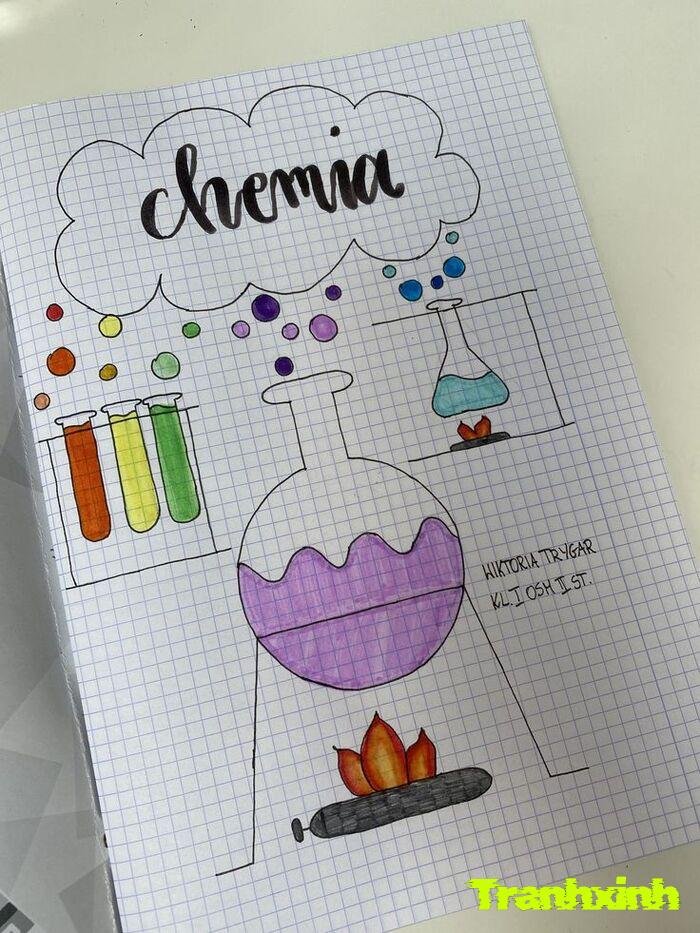 chemia
WIKTORIA TRYGAR
KL. I OSM II ST.
Tranhxinh